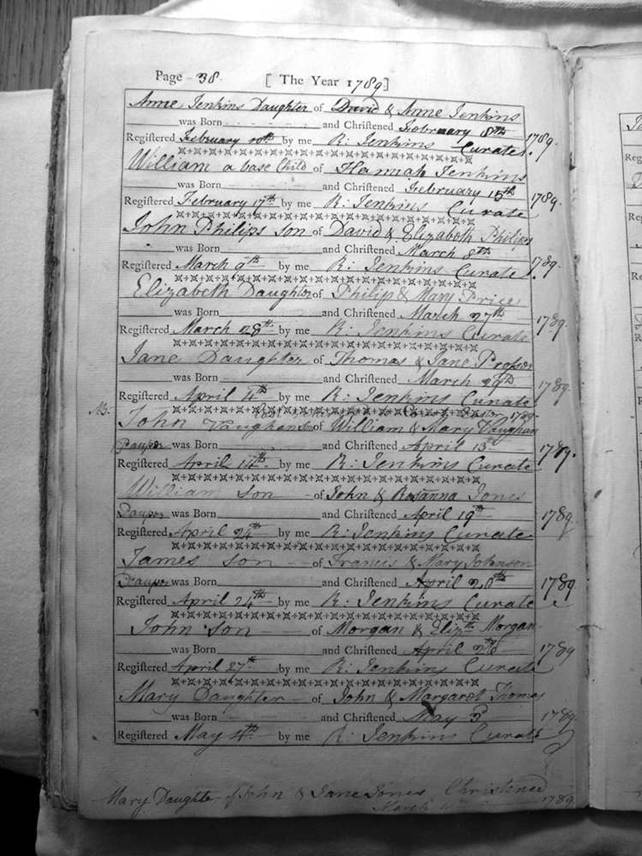 Page 38 [ The Year 1789 ]
Anne Jenkins Daughter of David & Anne Jenkins
was Born and Chriſtened February 8th 1789.
Regiſtered February 10th by me R: Jenkins Curate
William a base Child of Hannah Jenkins
was Born and Chriſtened February 15th 1789.
Regiſtered February 17th by me R: Jenkins Curate
John Philips Son of David & Elizabeth Philips
was Born and Chriſtened March 8th 1789.
Regiſtered March 9th by me R: Jenkins Curate
Elizabeth Daughter of Philip & Mary Price
was Born and Chriſtened March 27th 1789.
Regiſtered March 28th by me R: Jenkins Curate
Jane Daughter of Thomas & Jane Prosser
was Born and Chriſtened March 1789.
Regiſtered April 4th by me R: Jenkins Curate
John Vaughan Son of William & Mary Vaughan
Pauper was Born and Chriſtened April 13th 1789.
Regiſtered April 14th by me R: Jenkins Curate
William Son of John & Rosanna Jones
Pauper and Chriſtened April 19th 1789
Regiſtered April 24th by me R: Jenkins Curate
James Son of Francis & Mary Johnson
Pauper was Born and Chriſtened April 20th 1789
Regiſtered April 24th by me R: Jenkins Curate
John Son of Morgan & Elizth Morgan
was Born and Chriſtened April 1789
Regiſtered April 27th by me R: Jenkins Curate
Mary Daughter of John & Margaret Thomas
was Born and Chriſtened May 3 1789
Regiſtered May 4th by me R: Jenkins Curate
Mary Daughter of John & Jane Jones Christened
March 1789